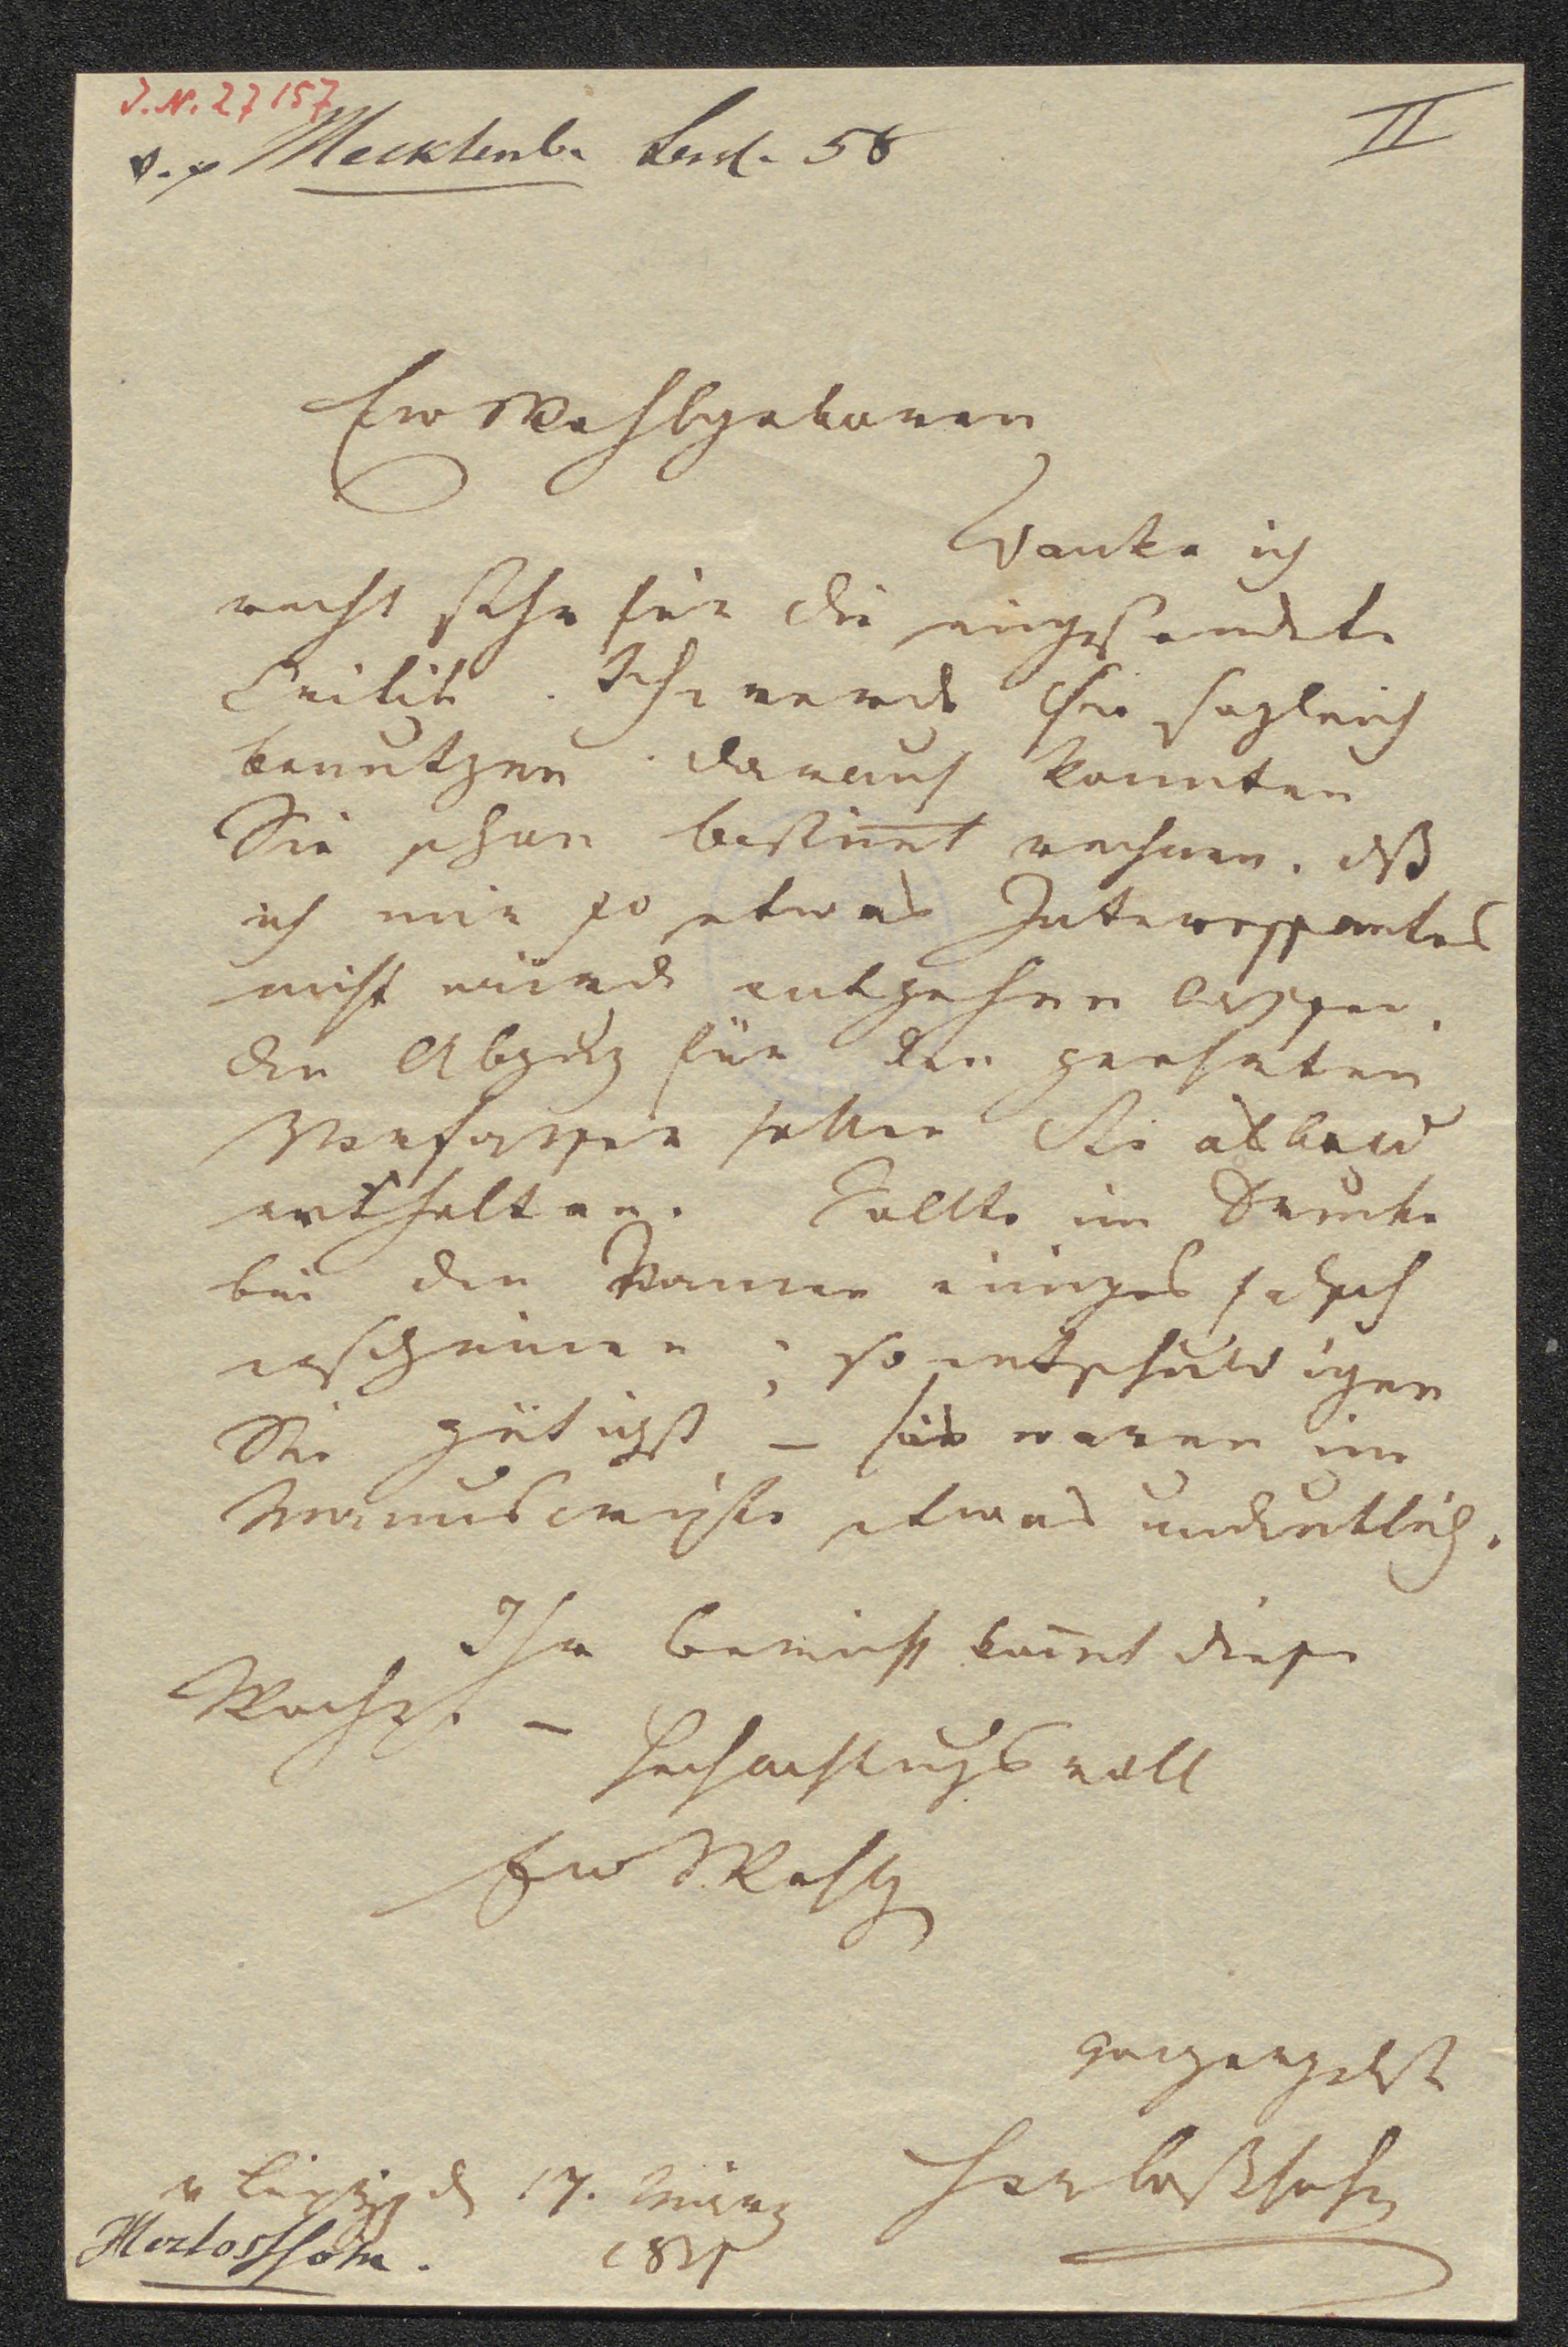 J.N. 27157
Mecklenb. 58
II
Ew Wohlgeboren
danke ich
recht sehr für die eingesandte
Critik. Ich werde sie sogleich
benutzen. darauf konnten
Sie schon bestimt rechnen, dß
ich mir so etwas Interessantes
nicht würde entgehen lassen.
Den Abzug für den geehrten
Verfasser sollen Sie alsbald
erhalten. Sollte im Drucke
bei den Namen einiges falsch
erscheinen; so entschuldigen
Sie gütigst – sie waren im
Manuscripte etwas undeutlich.
Ihr Bericht komt diese
Woche. –
Hochachtungsvoll
Ew Wohlg
ganzergebst
Herloßsohn
Leipzig d 17. März
Herlossohn.